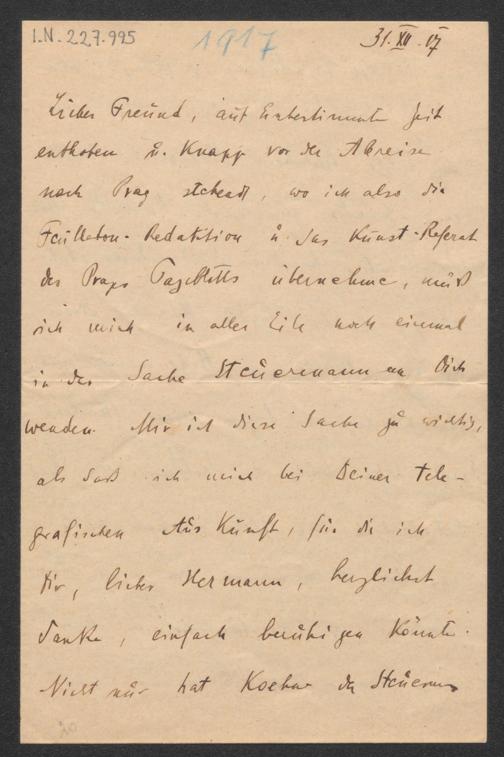 I.N. 227.995
1917
31. XII. 17
Lieber Freund, auf unbestimmte Zeit
enthoben u. knapp vor der Abreise
nach Prag stehend, wo ich also die
Feuilleton-Redaktion u. das Kunst-Referat
des Prager Tagblatts übernehme, muß
ich mich in aller Eile noch einmal
in der Sache Steuermann an Dich
wenden. Mir ist diese Sache zu wichtig,
als daß ich mich bei Deiner tele-
grafischen Auskunft, für die ich
Dir, lieber Hermann, herzlichst
danke, einfach beruhigen könnte.
Nicht nur hat der